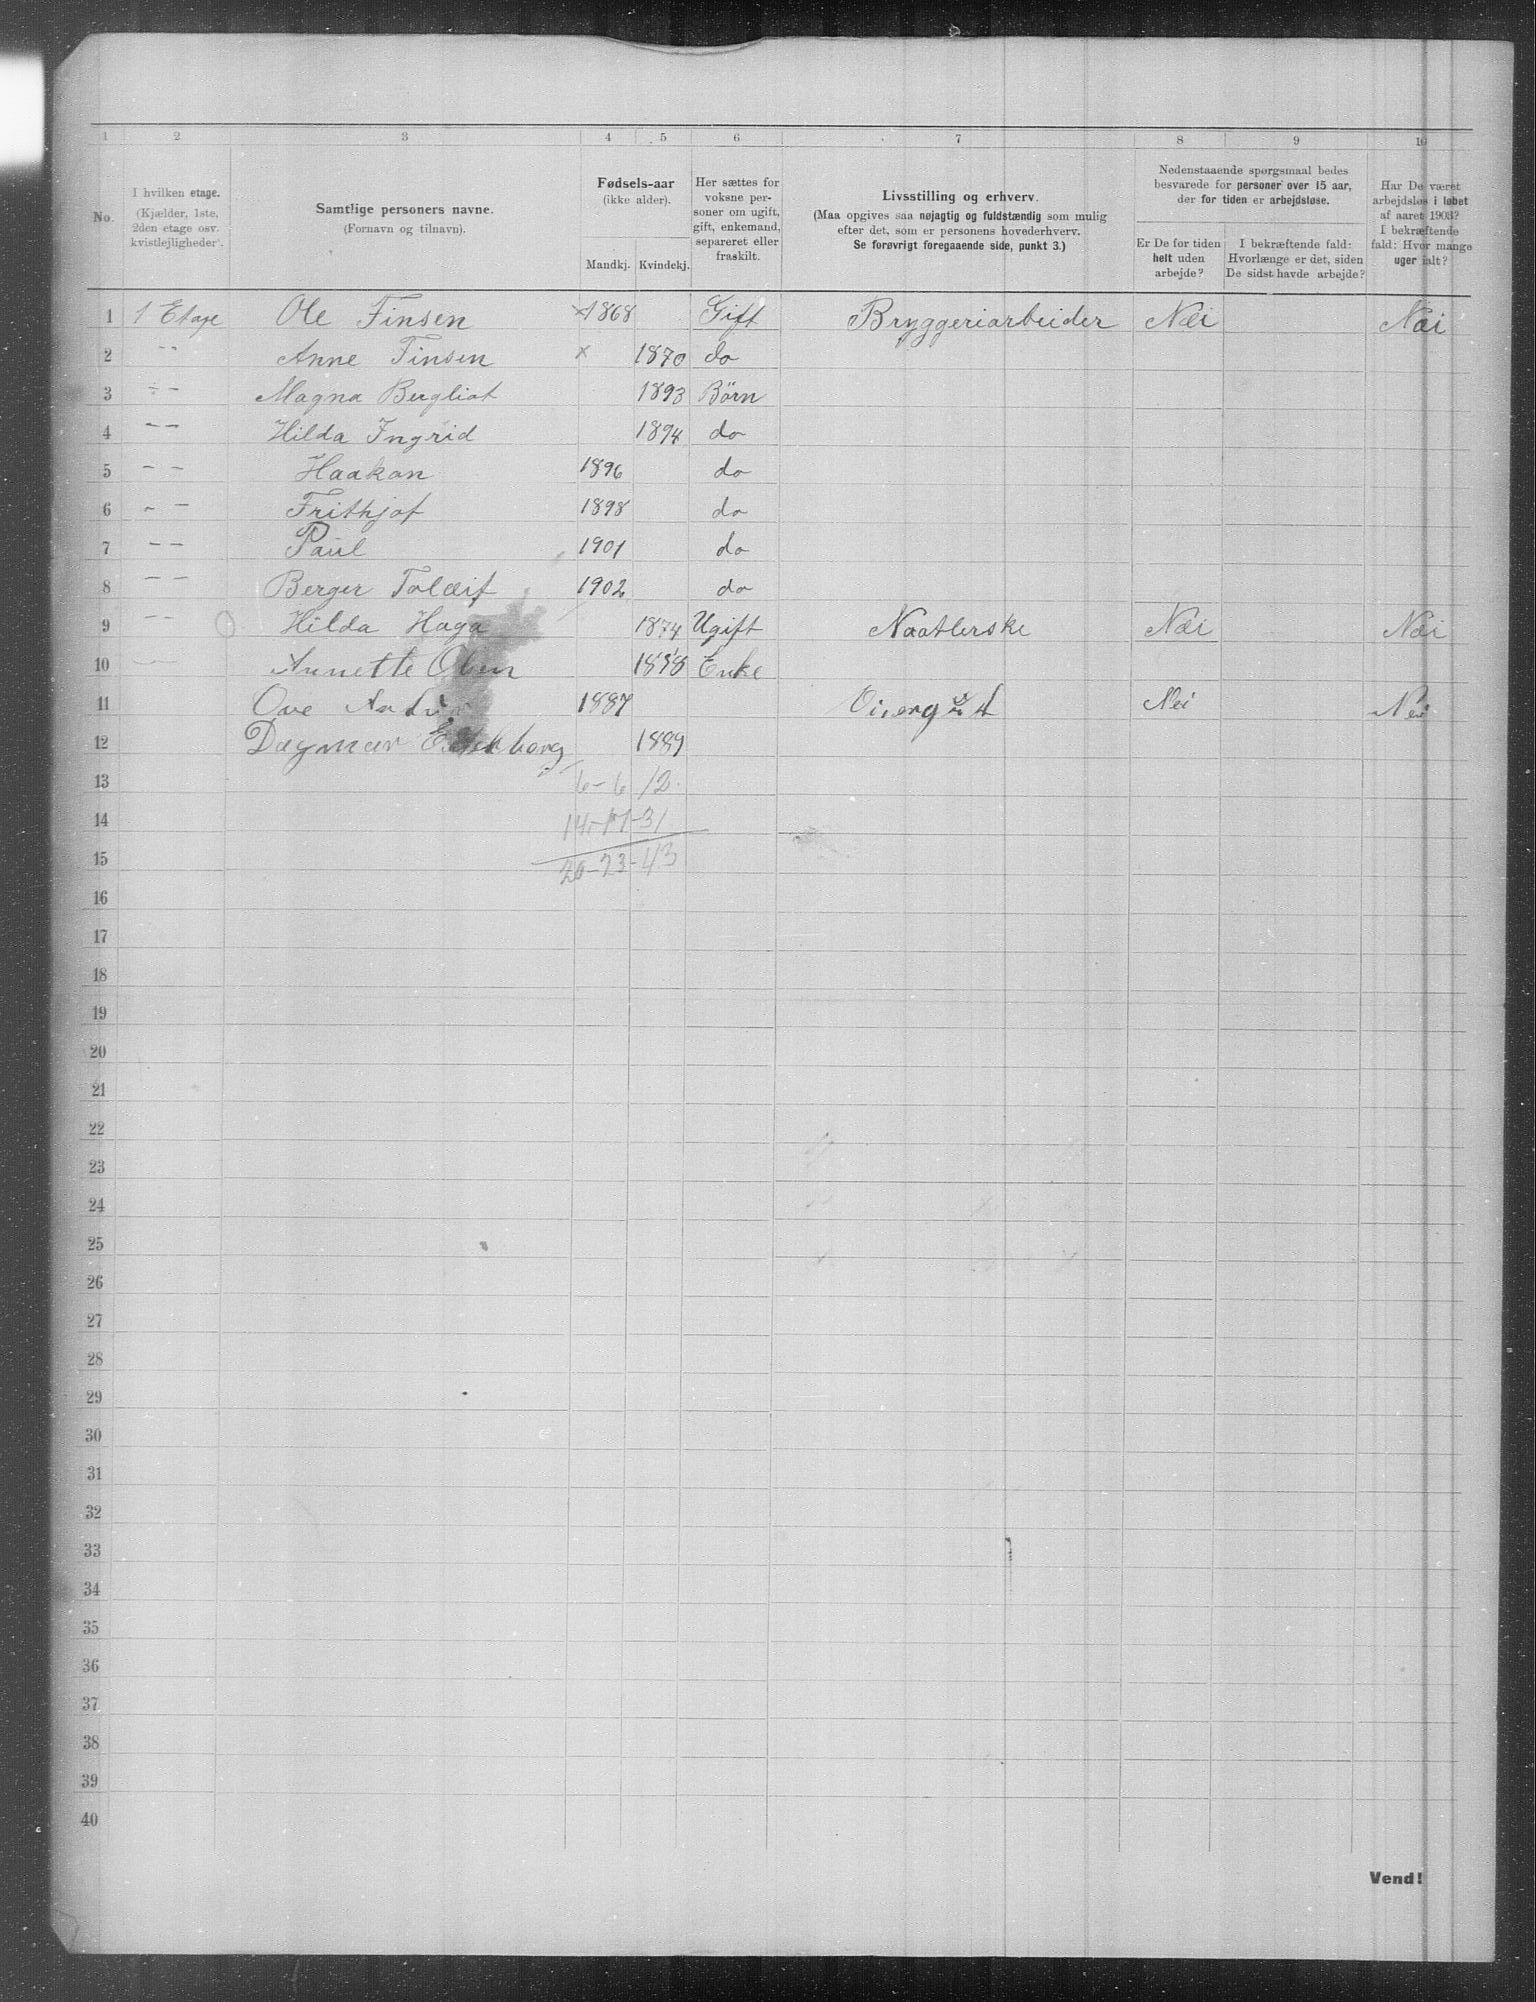 1 2 3 4 5 6 7 8 9 10
No.
I hvilken etage.
(Kjælder, 1ste,
2den etage osv.
kvistlejligheder).
Samtlige personers navne.
(Fornavn og tilnavn).
Fødsels-aar
(ikke alder).
Mandkj. Kvindekj.
Her sættes for
voksne per-
soner om ugift,
gift, enkemand,
separeret eller
fraskilt.
Livsstilling og erhverv.
(Maa opgives saa nøjagtig og fuldstændig som mulig
efter det, som er personens hovederhverv.
Se forøvrigt foregaaende side, punkt 3.)
Nedenstaaende spørgsmaal bedes
besvarede for personer over 15 aar,
der for tiden er arbejdsløse.
Er De for tiden
helt uden
arbejde?
I bekræftende fald:
Hvorlænge er det, siden
De sidst havde arbejde?
Har De været
arbejdsløs i løbet
af aaret 1903?
I bekræftende
fald: Hvor mange
uger ialt?
1 1 Etage Ole Finsen ×1868 Gift Bryggeriarbeider Nei Nei
2 -- Anne Finsen × 1870 do
3 -- Magna Bergliot 1893 Børn
4 -- Hilda Ingrid 1894 do
5 -- Haakon 1896 do
6 -- Frithjof 1898 do
7 -- Paul 1901 do
8 -- Berger Toleif 1902 do
9 -- Hilda Haga 1874 Ugift Naatlerske Nei Nei
10 Annette Olsen Enke
11 Ove 1887 Nei Nei
12 Dagmar 1889
13 6-6 12
14 14-17-31
15 20-23-43
16
17
18
19
20
21
22
23
24
25
26
27
28
29
30
31
32
33
34
35
36
37
38
39
40
Vend!